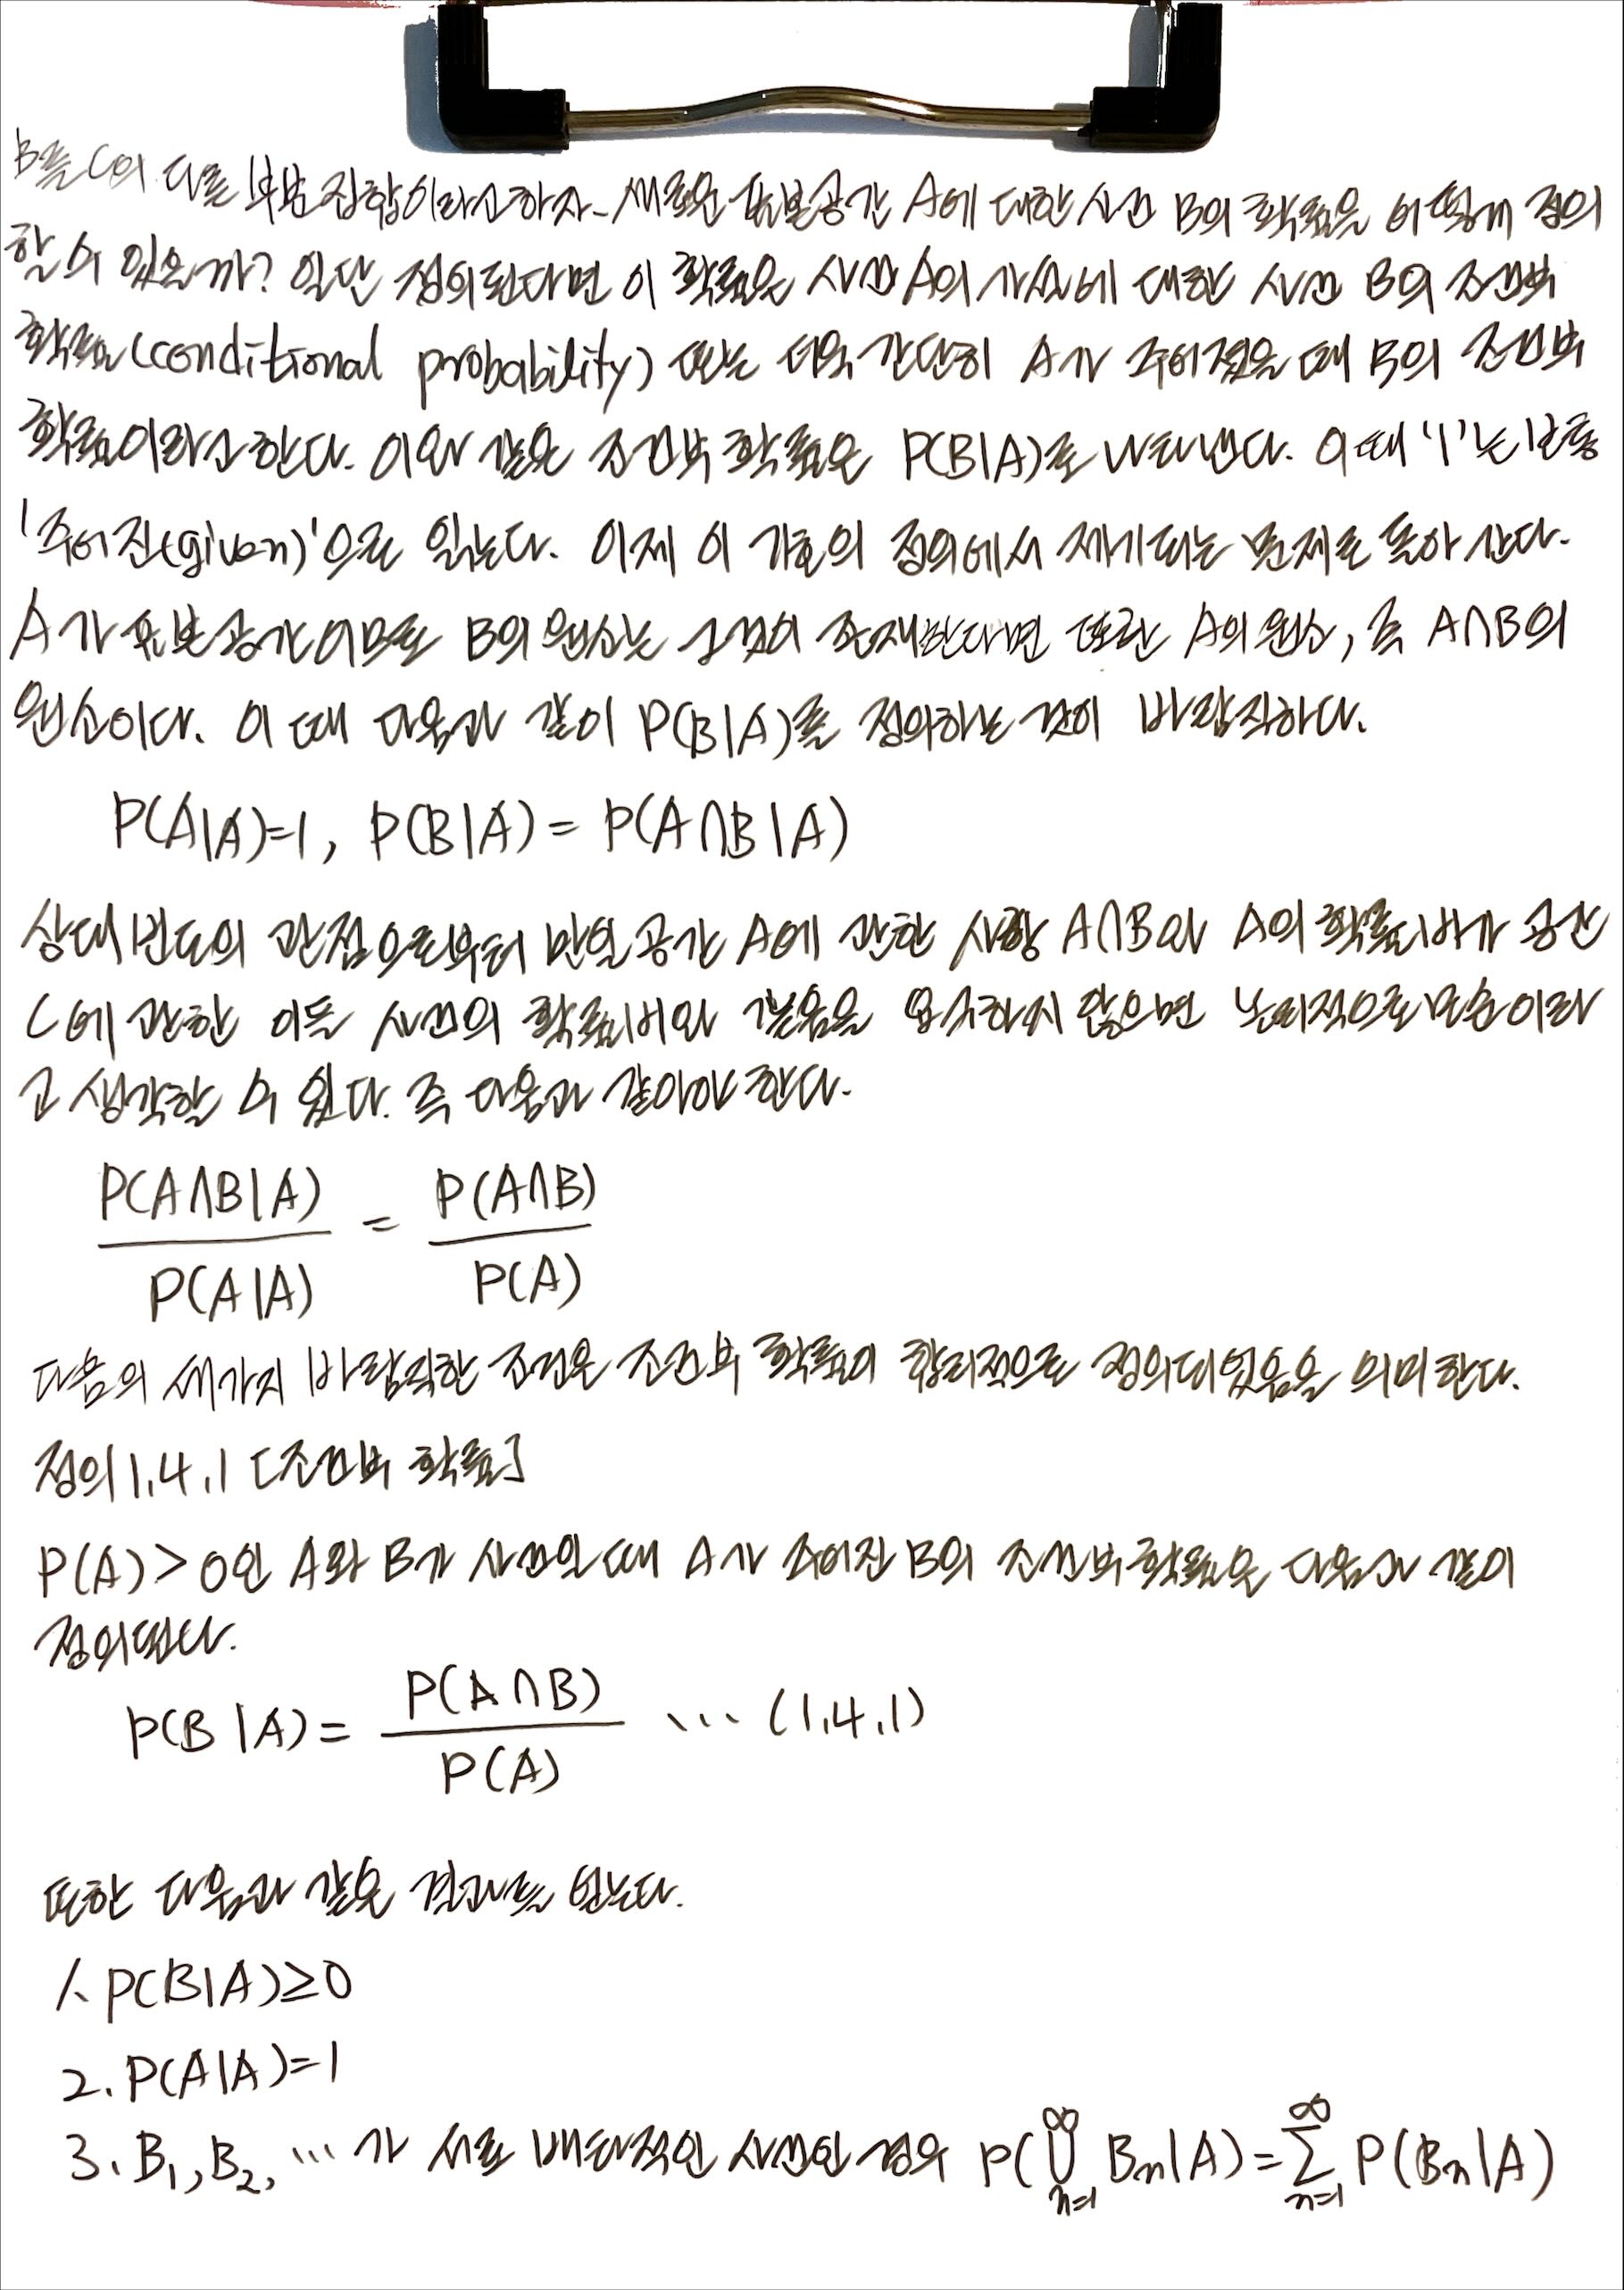 B를 C의 다른 부분집합이라고하자. 새로운 표본공간 A에 대한 사건 B의 확률을 어떻게 정의
할 수 있을까? 일단 정의된다면 이 확률은 사건 A의 가설에 대한 사건 B의 조건부
확률(conditional probability) 또는 더욱 간단히 A가 주어졌을 때 B의 조건부
확률이라고 한다. 이와 같은 조건부 확률은 P(B|A)로 나타낸다. 이때 '|'는 보통
'주어진(given)'으로 읽는다. 이제 이 기호의 정의에서 제기되는 문제로 돌아 간다.
A가 표본공간이므로 B의 원소는 그것이 존재한다면 또한 A의 원소, 즉 A∩B의
원소이다. 이 때 다음과 같이 P(B|A)를 정의하는 것이 바람직하다.
P(A|A)=1, P(B|A) = P(A∩B|A)
상대빈도의 관점으로부터 만일 공간 A에 관한 사항 A∩B와 A의 확률비가 공간
C에 관한 이들 사건의 확률비와 같음을 요구하지 않으면 논리적으로 모순이라
고 생각할 수 있다. 즉 다음과 같아야 한다.
P(A∩B|A) / P(A|A) = P(A∩B) / P(A)
다음의 세가지 바람직한 조건은 조건부 확률이 합리적으로 정의되었음을 의미한다.
정의 1.4.1 [조건부 확률]
P(A) > 0인 A와 B가 사건일 때 A가 주어진 B의 조건부확률은 다음과 같이
정의된다.
P(B|A) = P(A∩B) / P(A) ... (1.4.1)
또한 다음과 같은 결과를 얻는다.
1. P(B|A)≥0
2. P(A|A)=1
3. B₁, B₂, ... 가 서로 배타적인 사건인 경우 P(⋃_{n=1}^{∞} Bn|A) = ∑_{n=1}^{∞} P(Bn|A)